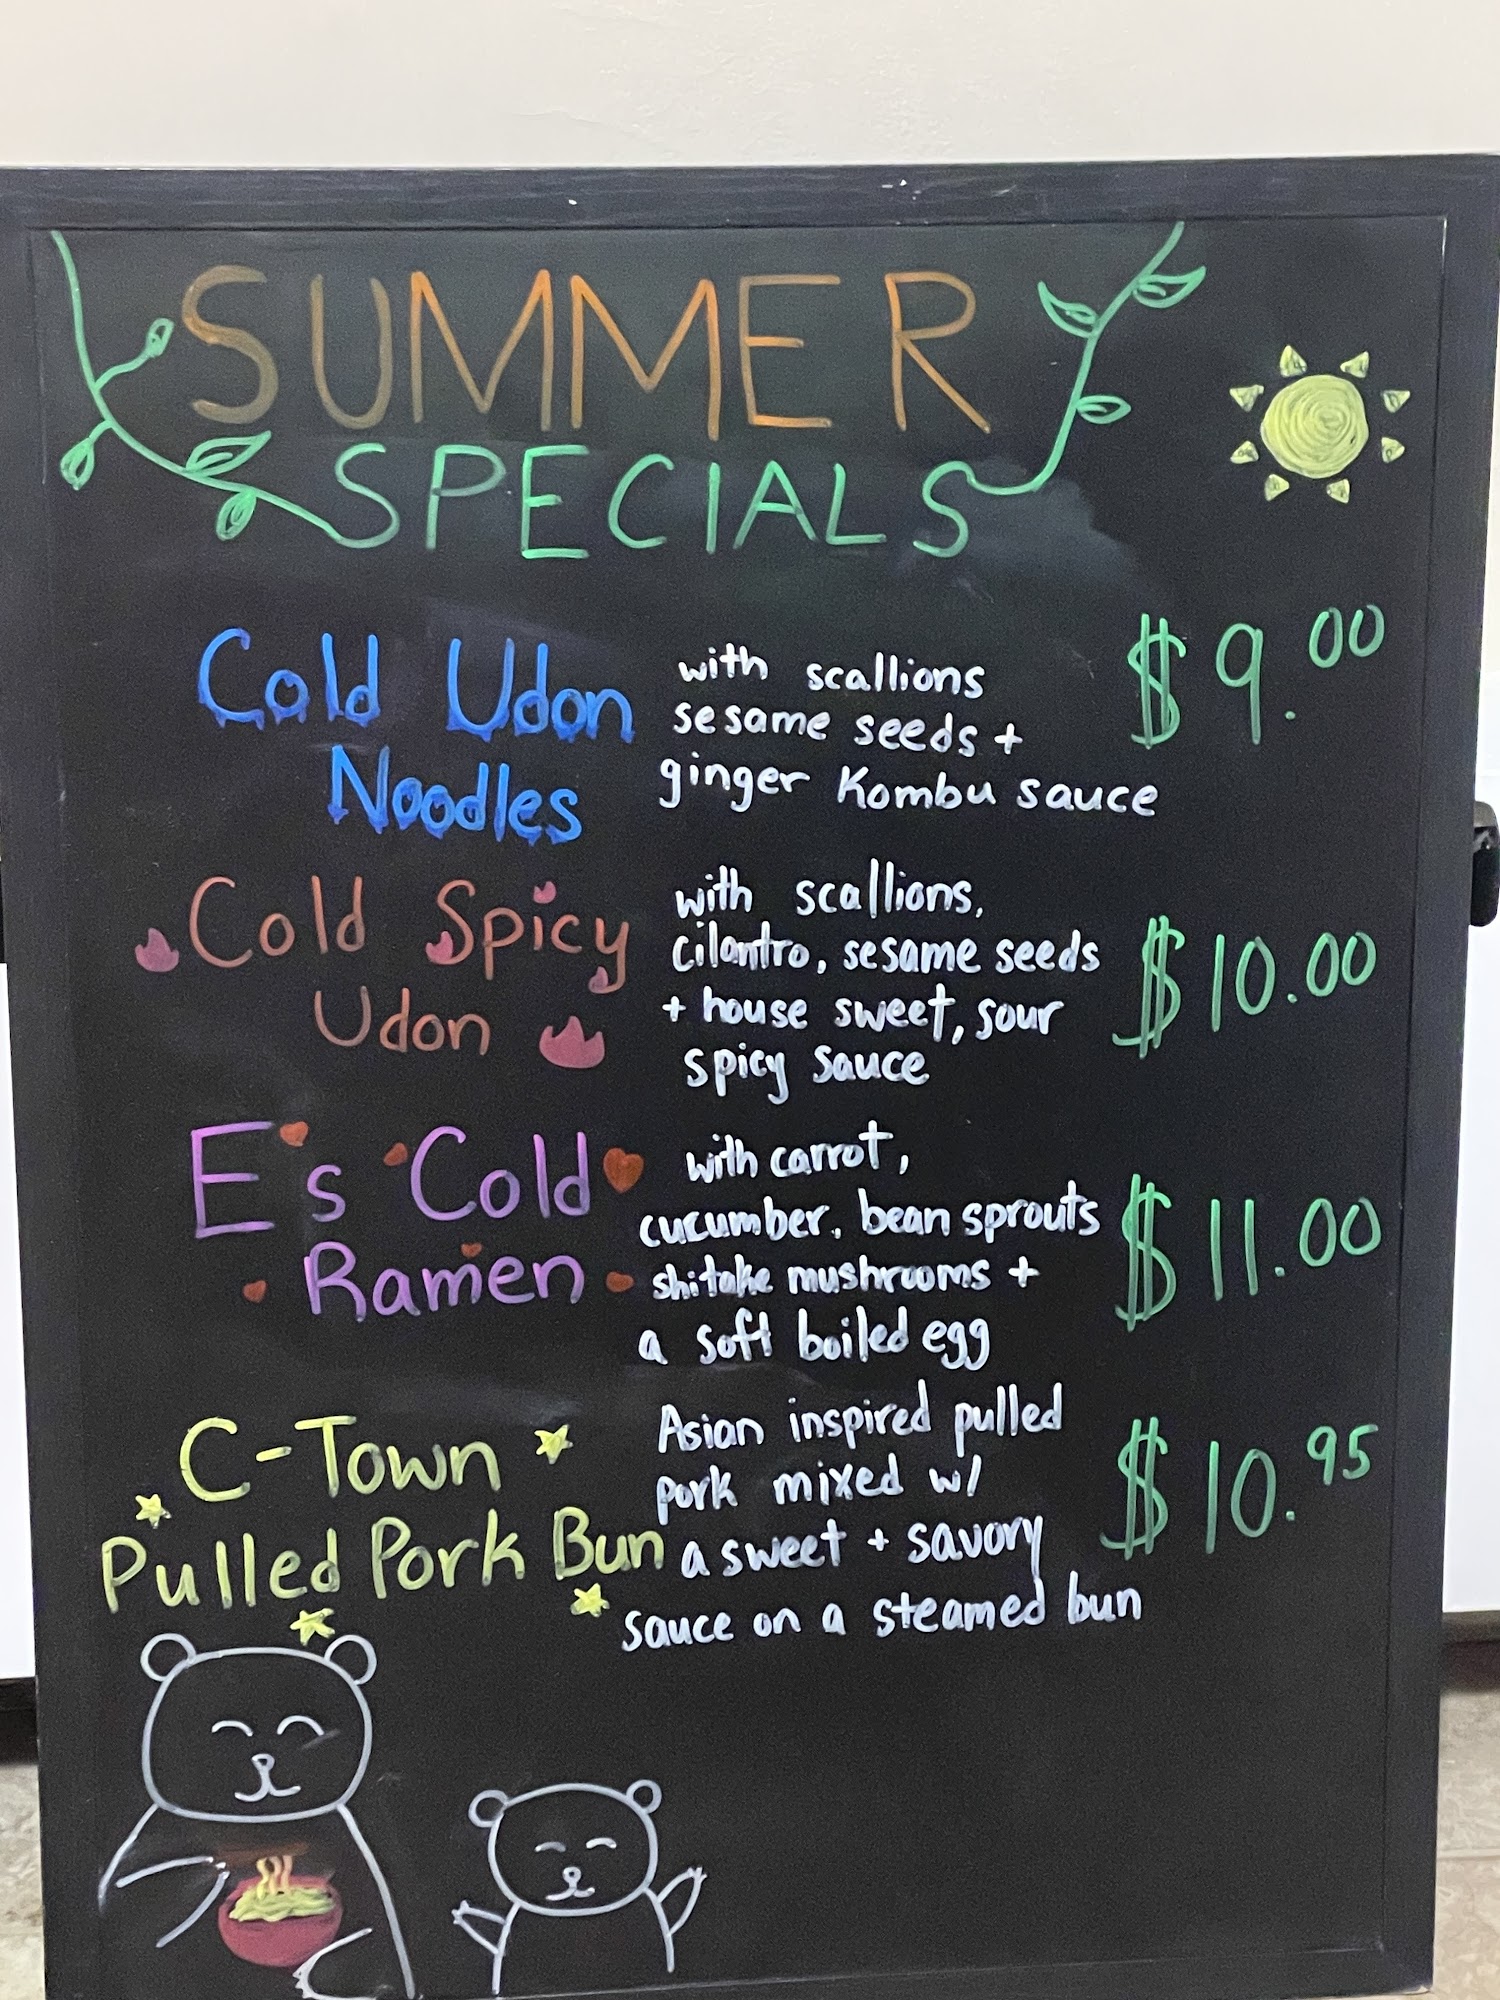 SUMMER
SPECIALS
Cold Udon
Noodles
with scallions
sesame seeds +
ginger Kombu sauce
$9.00
Cold Spicy
Udon
with scallions,
cilantro, sesame seeds
+ house sweet, sour
spicy sauce
$10.00
E's Cold
Ramen
with carrot,
cucumber, bean sprouts
shitake mushrooms +
a soft boiled egg
$11.00
C-Town
Pulled Pork Bun
Asian inspired pulled
pork mixed w/
a sweet + savory
sauce on a steamed bun
$10.95